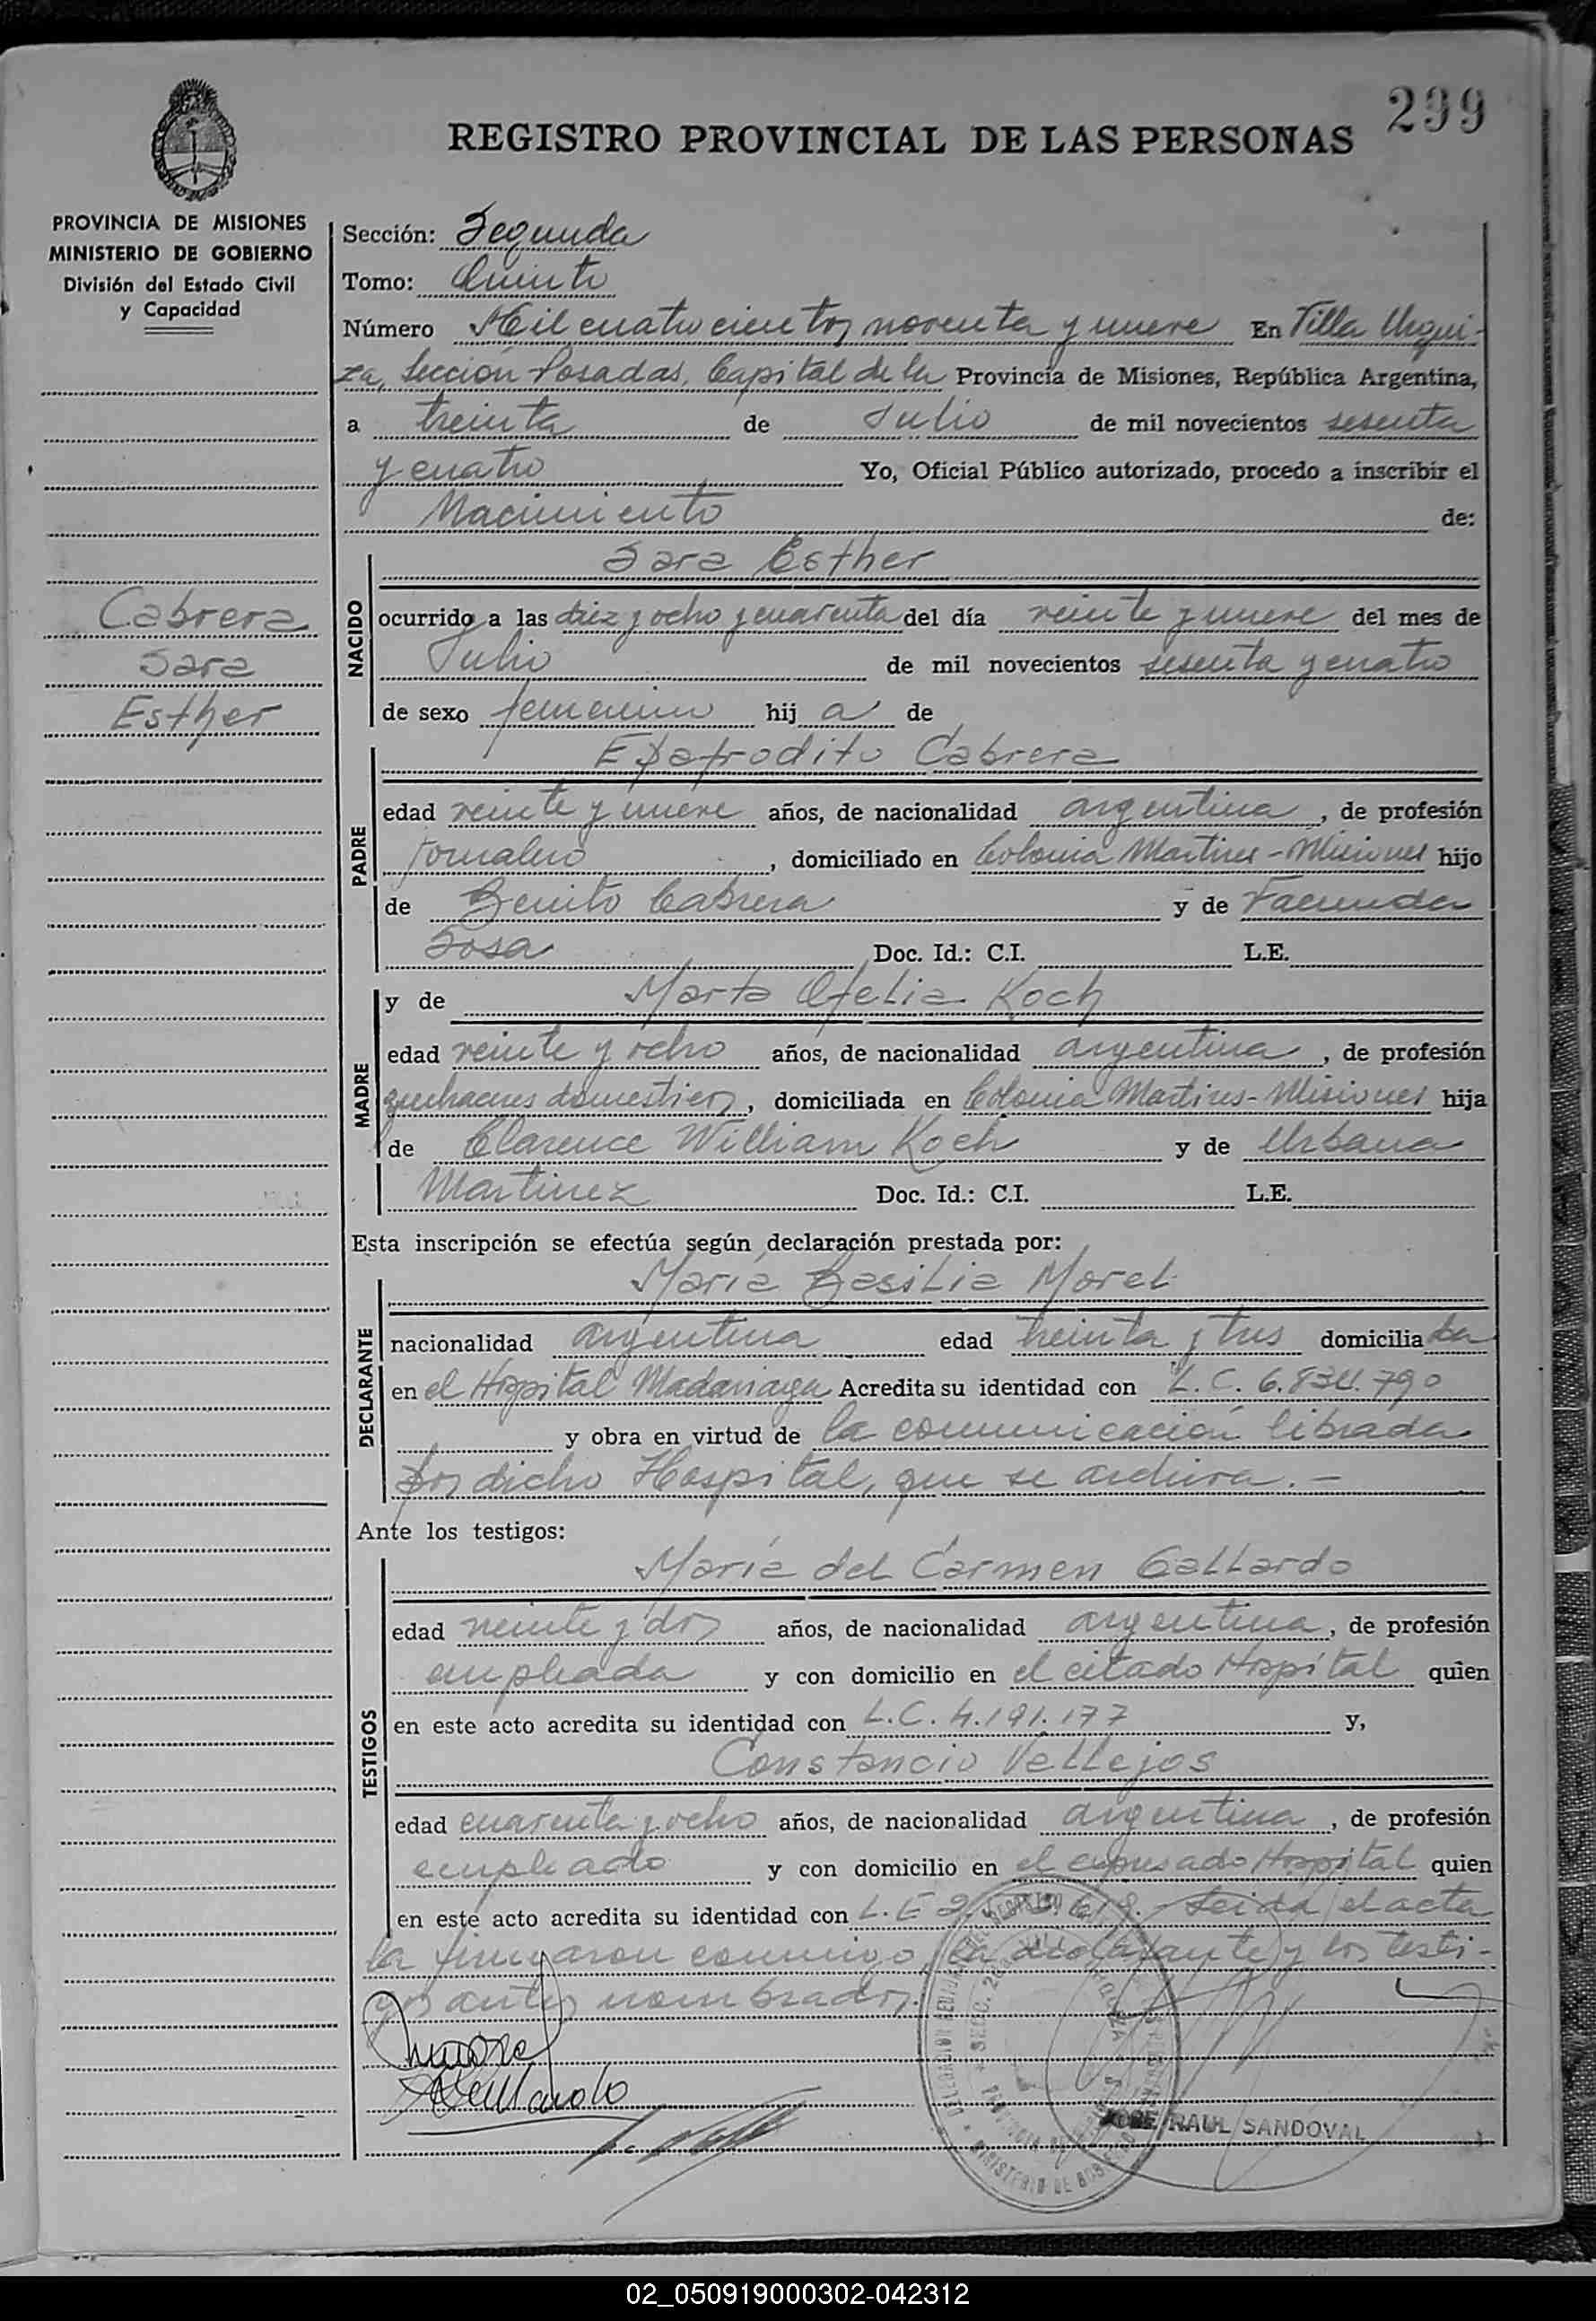 299
REGISTRO PROVINCIAL DE LAS PERSONAS
PROVINCIA DE MISIONES
MINISTERIO DE GOBIERNO
División del Estado Civil
y Capacidad
Cabrera
Sara
Esther
Sección: Segunda
Tomo: Quinto
Número Mil cuatrocientos noventa y nueve En Villa Urqui-
za, Sección Posadas, Capital de la Provincia de Misiones, República Argentina,
a treinta de Julio de mil novecientos sesenta
y cuatro Yo, Oficial Público autorizado, procedo a inscribir el
Nacimiento de:
NACIDO
Sara Esther
ocurrido a las diez y ocho y cuarenta del día veinte y nueve del mes de
Julio de mil novecientos sesenta y cuatro
de sexo femenino hij a de
PADRE
Epafrodito Cabrera
edad veinte y nueve años, de nacionalidad argentina, de profesión
jornalero, domiciliado en Colonia Martires-Misiones hijo
de Benito Cabrera y de Facunda
Sosa Doc. Id.: C.I. L.E.
MADRE
y de Marta Ofelia Koch
edad veinte y ocho años, de nacionalidad argentina, de profesión
quehaceres domesticos, domiciliada en Colonia Martires-Misiones hija
de Clarence William Koch y de Urbana
Martinez Doc. Id.: C.I. L.E.
Esta inscripción se efectúa según declaración prestada por:
DECLARANTE
María Basilia Morel
nacionalidad argentina edad treinta y tres domicilia da
en el Hospital Madariaga Acredita su identidad con L.C. 6.834.790
y obra en virtud de la comunicación librada
por dicho Hospital, que se archiva.-
Ante los testigos:
TESTIGOS
María del Carmen Gallardo
edad veinte y dos años, de nacionalidad argentina, de profesión
empleada y con domicilio en el citado Hospital quien
en este acto acredita su identidad con L.C. 4.191.177 y,
Constancio Vallejos
edad cuarenta y ocho años, de nacionalidad argentina, de profesión
empleado y con domicilio en el expresado Hospital quien
en este acto acredita su identidad con L.E. Leida el acta
la firmaron conmigo, la declarante y los testi-
gos antes nombrados.
JOSE RAUL SANDOVAL
02_050919000302-042312